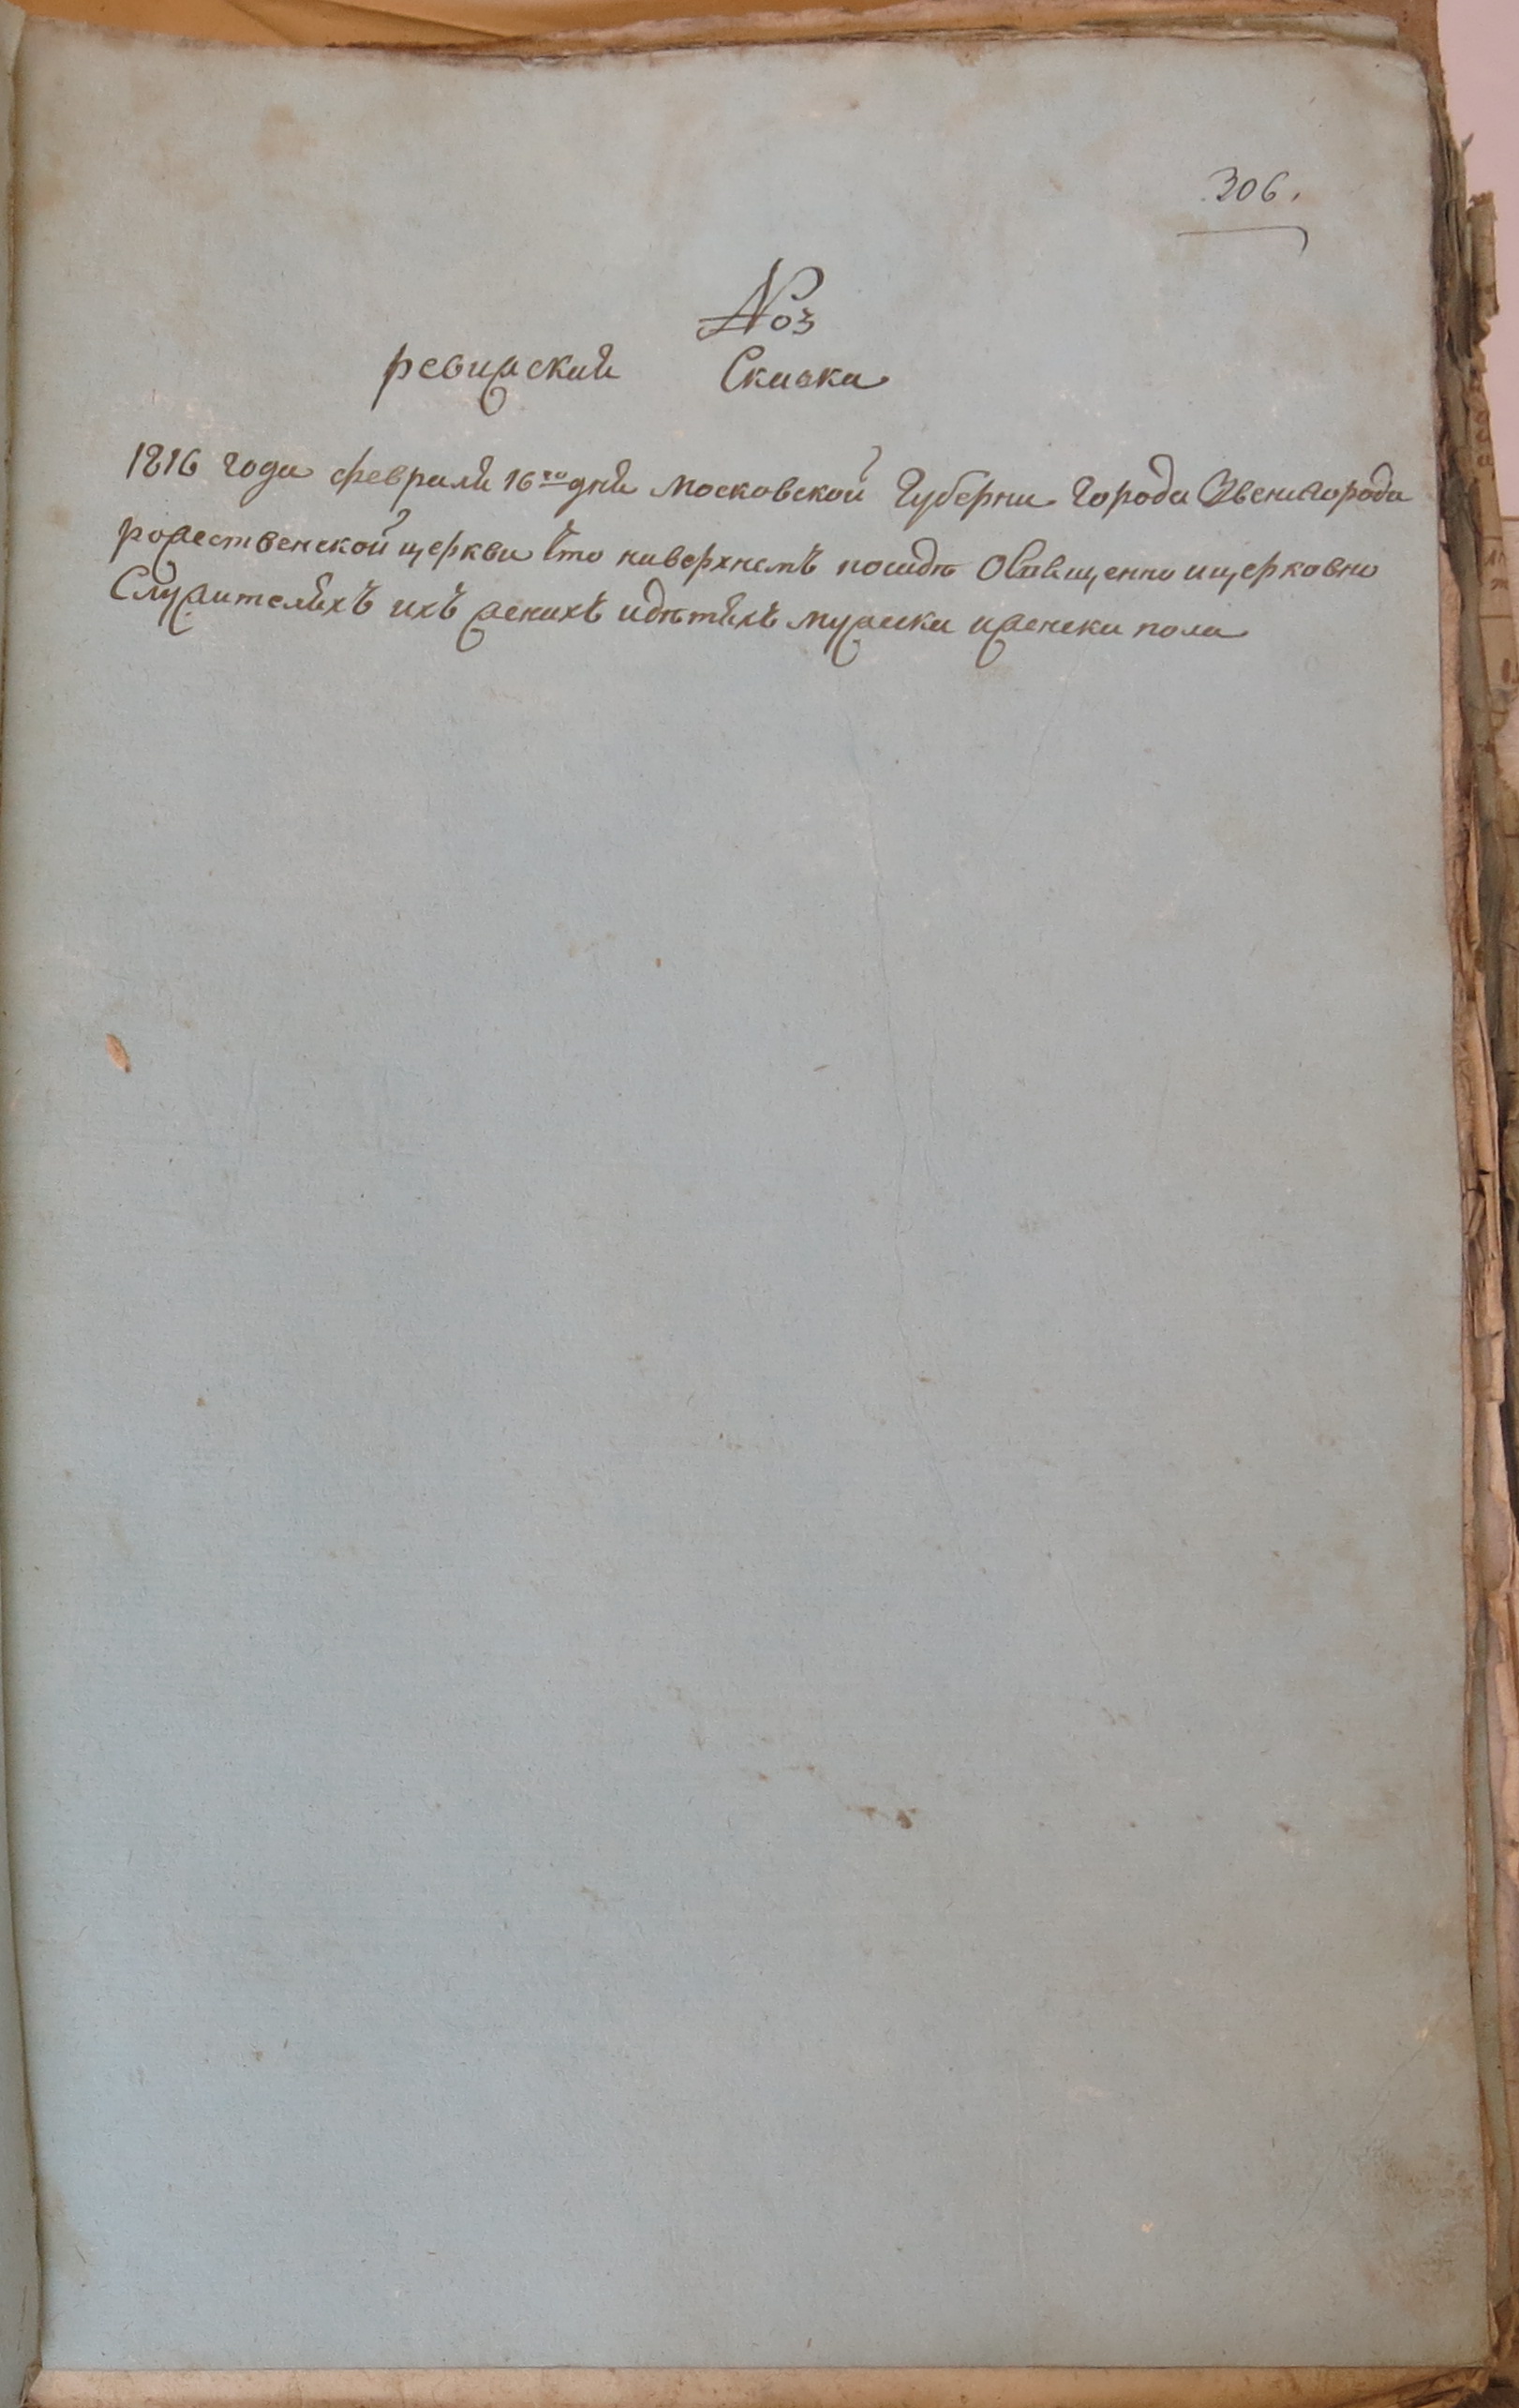 306.
№ 3
ревижскаѧ Скаска
1816 года февралѧ 16го днѧ московской Губерни Города Звенигорода
рожественской церкви что наверхнемъ посаде Осващенно ицерковно
Служителѧхъ ихъ женихъ идѣтѧхъ мужска иженска пола